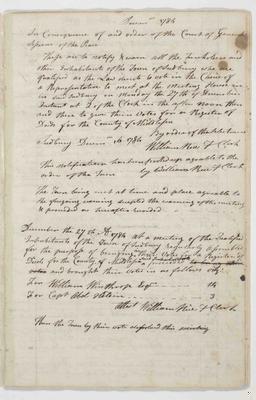 Decem 1786
In Consequence of and order of the Court of General
Sessions of the Peace
These are to notify & warn all the freeholders and
other Inhabitants of the Town of Sudbury who are
qualified as the Law directs to vote in the Choice of
a Representative to meet at the Meeting House
in said Sudbury on Monday the 27th of December
Instant at 2 of the Clock in the after noon then
and there to give in their Votes for a Register of
Deeds for the County of Middlesex
By order of the Selectmen
Sudbury Decem 1786 William Rice T Clerk
This notification has been posted up agreable to the
order of the Town by William Rice T Clerk
The Town being met at time and place agreable to
the forgoing warning the meeting
& proceeded as hereafter recorded
December the 27th AD 1786 at a meeting of the
Inhabitants of the Town of Sudbury regularly assembled
for the purpose of bringing in their Votes for a Register of
Deeds for the County of Middlesex
and brought their votes in as follows viz
For William Winthrop Esqr 14
For Capt Abel 3
attest William Rice T Clerk
Then the Town by their vote dissolved this meeting